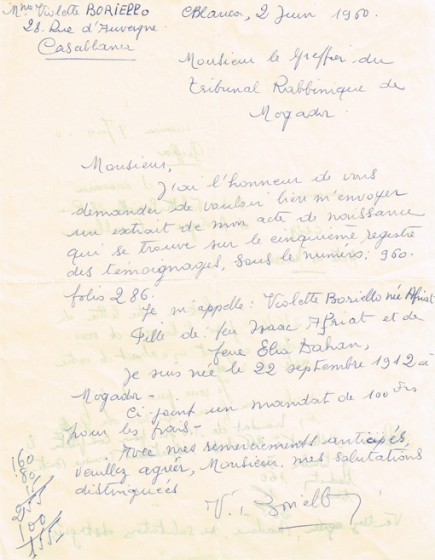 Mme Violette BORIELLO
28. Rue d'Auvergne
Casablanca
CBlanca, 2 Juin 1960.
Monsieur le Greffier du
Tribunal Rabbinique de
Mogador
Monsieur,
J'ai l'honneur de vous
demander de vouloir bien m'envoyer
un extrait de mon acte de naissance
qui se trouve sur le cinquième registre
des témoignages, sous le numéro: 960.
folio 286.
Je m'appelle: Violette Boriello née Afriat
Fille de feu Isaac Afriat et de
feue Elia Dahan,
Je suis née le 22 septembre 1912 à
Mogador -
Ci-joint un mandat de 100 frs
pour les frais. -
Avec mes remerciements anticipés,
veuillez agréer, Monsieur, mes salutations
distinguées
160
80
255
100
155